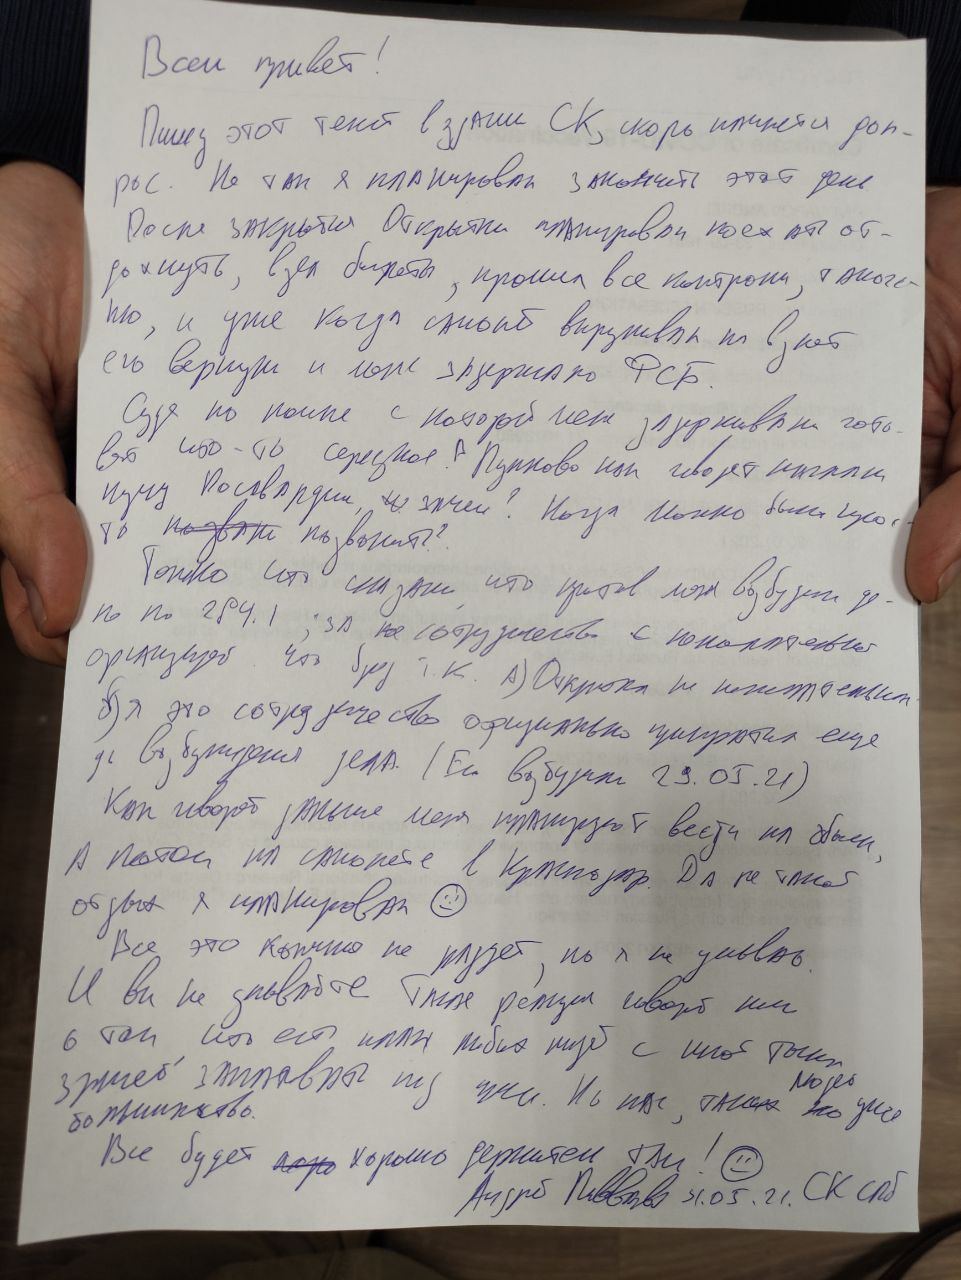 Всем привет!
Пишу этот текст в здании СК, скоро начнется доп-
рос. Не так я планировал закончить этот день
После закрытия Открытки планировал поехать от-
дохнуть, взял билеты, прошел все контроли, таможе-
ню, и уже когда самолёт выруливал на взлёт
его вернули и меня задержало ФСБ.
Судя по помпе с которой меня задерживали гото-
вят что-то серьезное. А Пулково как говорят нагнали
кучу Росгвардии, зачем? Когда можно было прос-
то позвонить?
Только что сказали, что против меня возбудили де-
ло по 284.1, за сотрудничество с нежелательной
организацией. Что бред т.к. А) Открытка не нежелательная.
б) Я это сотрудничество официально прекратил еще
до возбуждения дела. (Ее возбудили 29.05.21)
Как говорят дальше меня планируют везти на обыск,
А потом на самолете в Краснодар. Да не такой
отдых я планировал ☺
Все это конечно не радует, но я не унываю.
И вы не унывайте Такая реакция говорит нам
о том что есть план любых людей с иной точкой
зрения запаивать под уши. Но нас, таких людей уже
большинство.
Все будет хорошо держитесь там! ☺
Андрей Пивоваров 31.05.21. СК спб